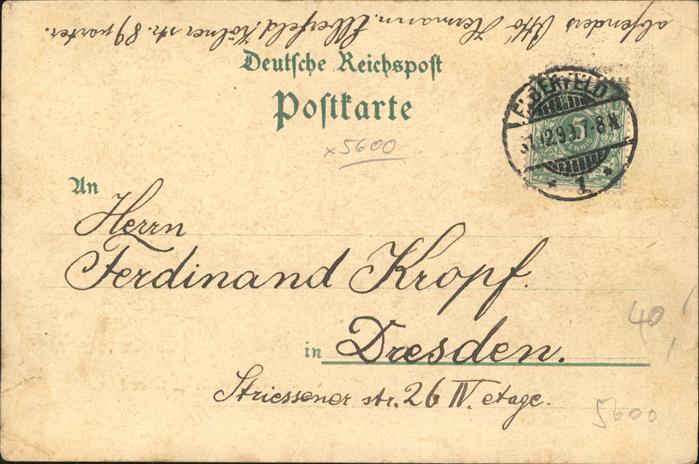 absender: Otto Hermann. Elberfeld. Kölner str. 89 parter.
Deutsche Reichspost
Postkarte
x5600
ELBERFELD
31.12.99. 7-8N
* 1 *
5
PFENNIG
An
Herrn
Ferdinand Kropf.
in Dresden.
Striessener str. 26 IV. etage.
40,
5600